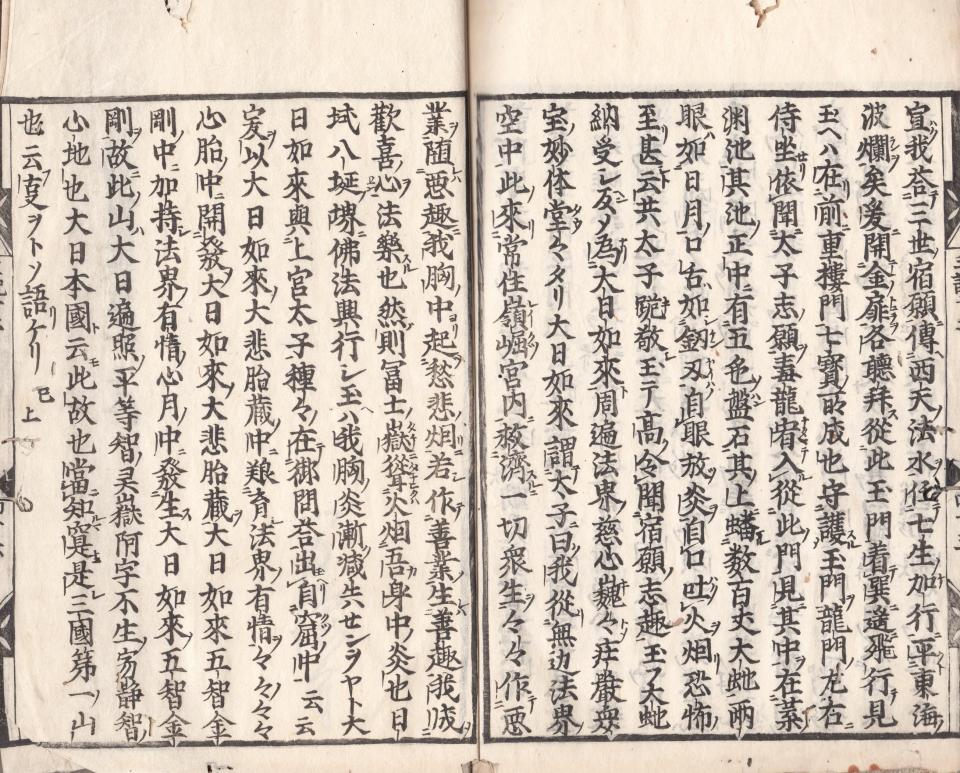 宣我答三世宿願傳西天法水住七生加行平東海
波爛矣爰開金扉各聽拜從此玉門着巽遥飛行見
玉ヘハ在前重樓門七寳所成也守護玉門龍門左右
侍坐依聞太子志願毒龍者入從此門見其中在
渕池其池正中有五色盤石其上蟠数百丈大虵兩
眼如日月口舌如釼刃自眼放炎自口吐火烟恐怖
至甚云共太子敬玉テ高令聞宿願志趣玉フ大虵
納受シ及為大日如來周遍法界慈心巍々
室妙体堂々タリ大日如來謂太子曰我從無边法界
空中此來常住嶺崛宮内救濟一切衆生々々作悪
業随悪趣我胸中起愁悲烟若作善業生善趣我成
歡喜心法藥也然則冨士嶽從聳火烟吾身中炎也日
域八埏堺佛法興行シ玉ハ我胸炎漸减失センヲヤト大
日如來與上官太子種々在御問答出自窟中云云
爰以大日如來大悲胎蔵中粮育法界有情々々々
心胎中開發大日如來大悲胎蔵大日如來五智金
剛中加持法界有情心月中發生大日如來五智金
剛故此山大日遍照平等智呉嶽阿字不生静智
心地也大日本國云此故也當知寔是三國第一山
也云ヲトソ語ケリ 已上